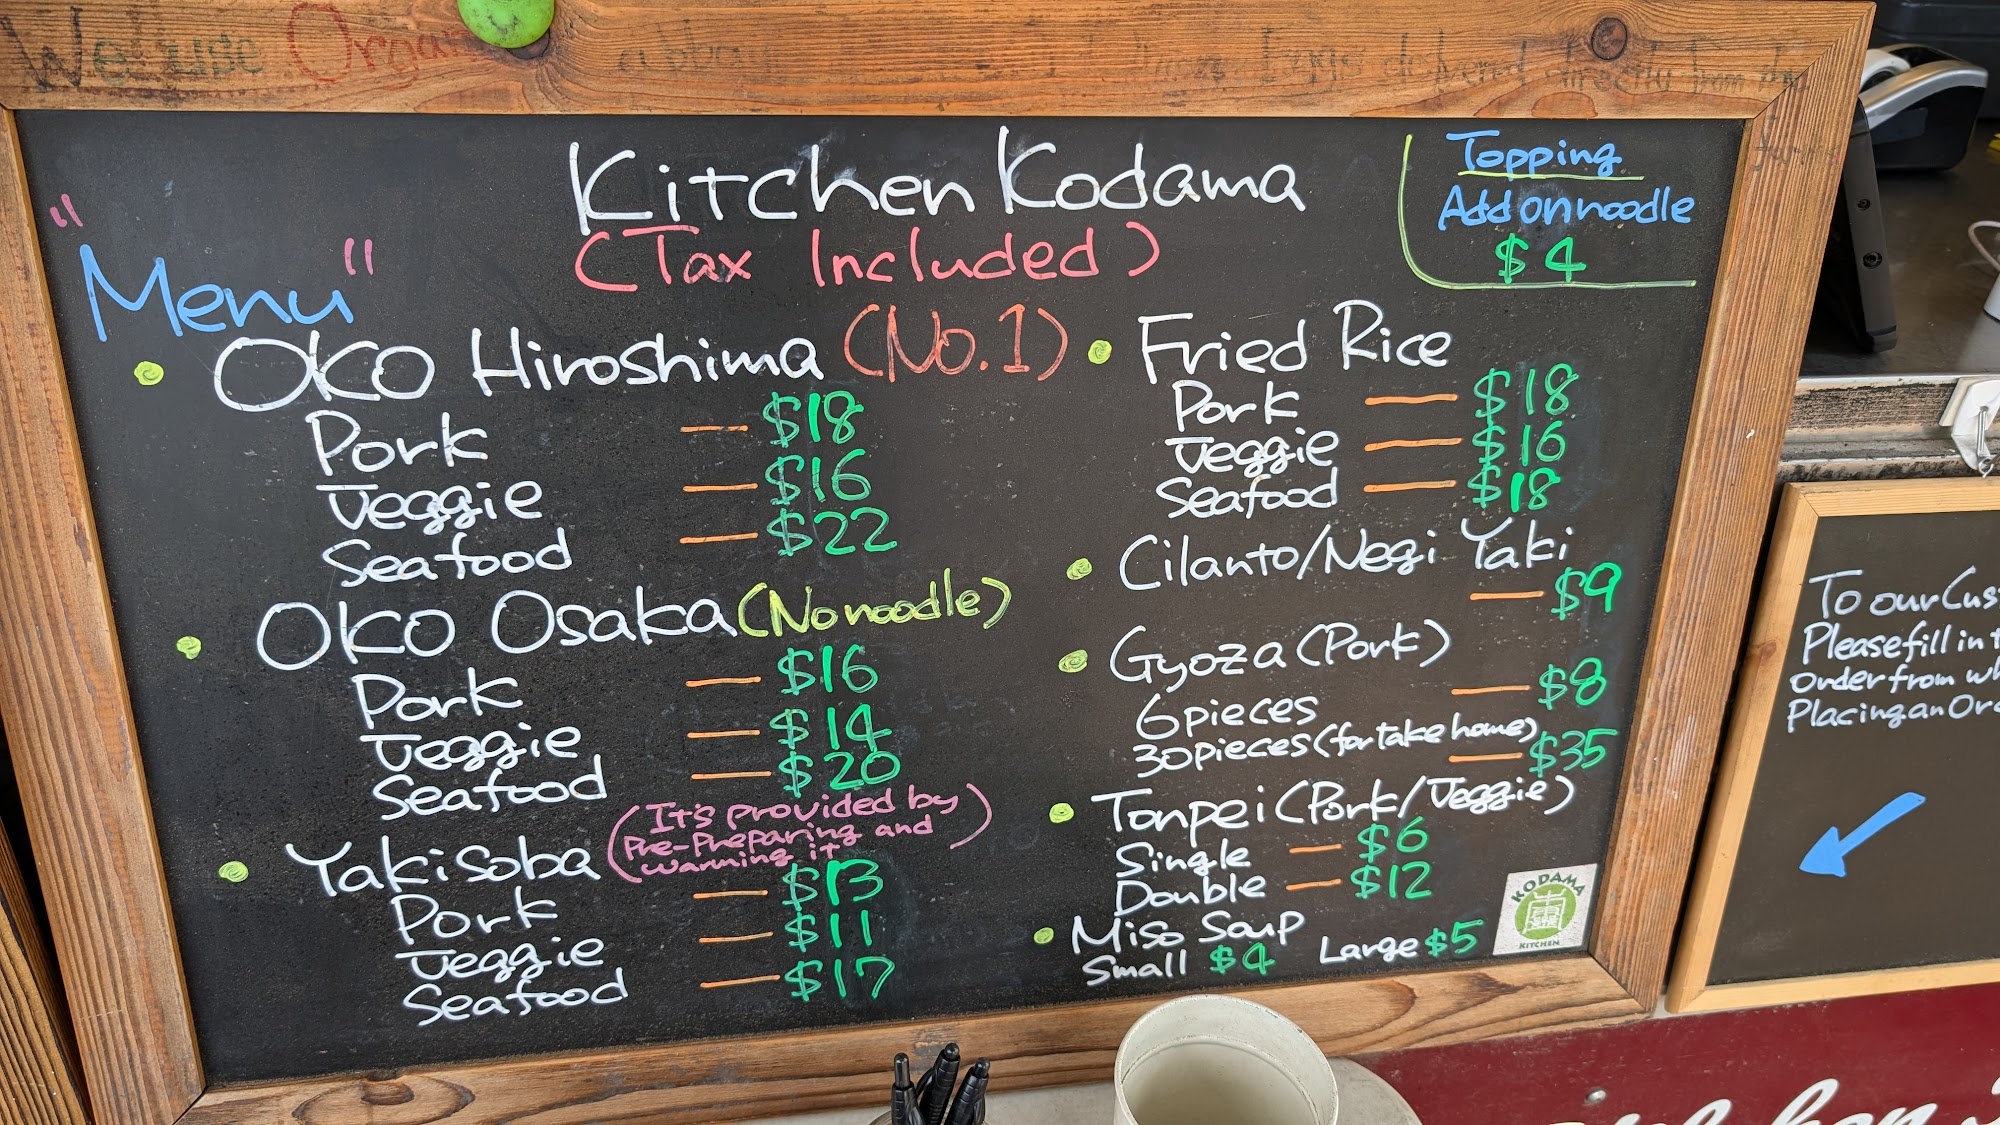 We use Organ
delivered directly from
Kitchen Kodama
(Tax Included)
"Menu"
Topping
Add on noodle
$4
• OKO Hiroshima (No.1)
Pork — $18
Veggie — $16
Seafood — $22
• OKO Osaka (No noodle)
Pork — $16
Veggie — $14
Seafood — $20
• Yakisoba (It's provided by
Pre-Preparing and
warming it)
Pork — $13
Veggie — $11
Seafood — $17
• Fried Rice
Pork — $18
Veggie — $16
Seafood — $18
• Cilanto/Negi Yaki
— $9
• Gyoza (Pork)
6 pieces — $8
30 pieces (for take home)
— $35
• Tonpei (Pork/Veggie)
Single — $6
Double — $12
• Miso Soup
Small $4 Large $5
KODAMA
KITCHEN
To our Cus
Please fill in t
order from wh
Placing an Or